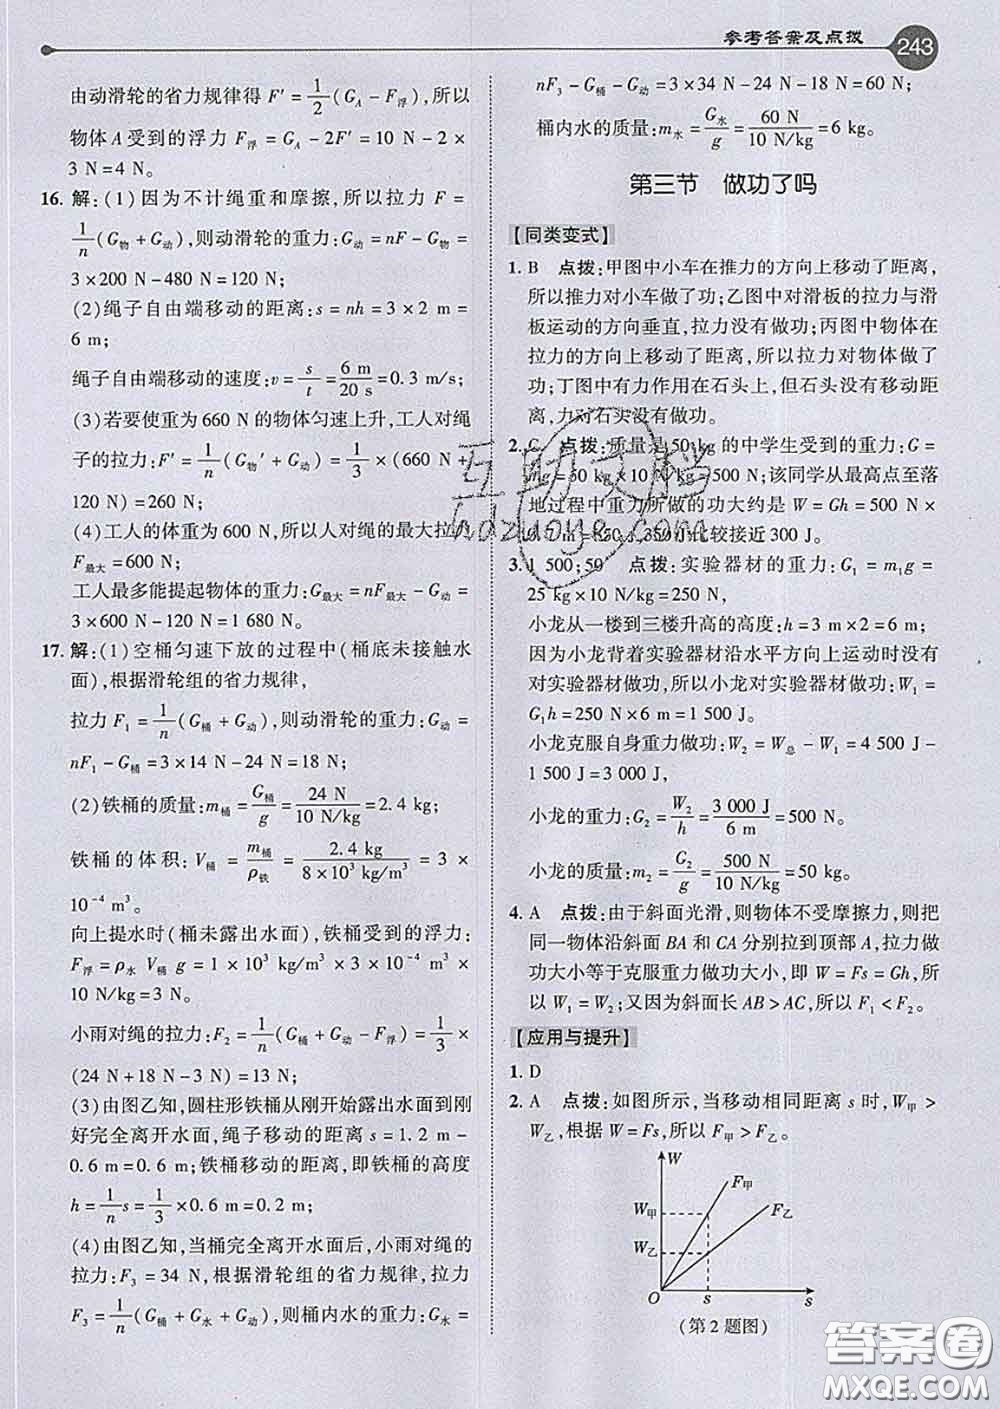 参考答案及点拨 243
由动滑轮的省力规律得 F′=1/2(G_A-F_浮),所以
物体 A 受到的浮力 F_浮=G_A-2F′=10 N-2×
3 N=4 N。
16. 解:(1)因为不计绳重和摩擦,所以拉力 F=
1/n(G_物+G_动),则动滑轮的重力:G_动=nF-G_物=
3×200 N-480 N=120 N;
(2)绳子自由端移动的距离:s=nh=3×2 m=
6 m;
绳子自由端移动的速度:v=s/t=6 m/20 s=0.3 m/s;
(3)若要使重为 660 N 的物体匀速上升,工人对绳
子的拉力:F′=1/n(G_物′+G_动)=1/3×(660 N+
120 N)=260 N;
(4)工人的体重为 600 N,所以人对绳的最大拉力
F_最大=600 N;
工人最多能提起物体的重力:G_最大=nF_最大-G_动=
3×600 N-120 N=1 680 N。
17. 解:(1)空桶匀速下放的过程中(桶底未接触水
面),根据滑轮组的省力规律,
拉力 F₁=1/n(G_桶+G_动),则动滑轮的重力:G_动=
nF₁-G_桶=3×14 N-24 N=18 N;
(2)铁桶的质量:m_桶=G_桶/g=24 N/10 N/kg=2.4 kg;
铁桶的体积:V_桶=m_桶/ρ_铁=2.4 kg/8×10³ kg/m³=3×
10⁻⁴ m³。
向上提水时(桶未露出水面),铁桶受到的浮力:
F_浮=ρ_水 V_桶 g=1×10³ kg/m³×3×10⁻⁴ m³×
10 N/kg=3 N,
小雨对绳的拉力:F₂=1/n(G_桶+G_动-F_浮)=1/3×
(24 N+18 N-3 N)=13 N;
(3)由图乙知,圆柱形铁桶从刚开始露出水面到刚
好完全离开水面,绳子移动的距离 s=1.2 m-
0.6 m=0.6 m;铁桶移动的距离,即铁桶的高度
h=1/n s=1/3×0.6 m=0.2 m;
(4)由图乙知,当桶完全离开水面后,小雨对绳的
拉力:F₃=34 N,根据滑轮组的省力规律,拉力
F₃=1/n(G_桶+G_水+G_动),则桶内水的重力:G_水=
nF₃-G_桶-G_动=3×34 N-24 N-18 N=60 N;
桶内水的质量:m_水=G_水/g=60 N/10 N/kg=6 kg。
第三节 做功了吗
【同类变式】
1. B 点拨:甲图中小车在推力的方向上移动了距离,
所以推力对小车做了功;乙图中对滑板的拉力与滑
板运动的方向垂直,拉力没有做功;丙图中物体在
拉力的方向上移动了距离,所以拉力对物体做了
功;丁图中有力作用在石头上,但石头没有移动距
离,力对石头没有做功。
2. C 点拨:质量是 50 kg 的中学生受到的重力:G=
mg=50 kg×10 N/kg=500 N;该同学从最高点至落
地过程中重力所做的功大约是 W=Gh=500 N×
J,350 J 比较接近 300 J。
3. 1 500;50 点拨:实验器材的重力:G₁=m₁g=
25 kg×10 N/kg=250 N,
小龙从一楼到三楼升高的高度:h=3 m×2=6 m;
因为小龙背着实验器材沿水平方向上运动时没有
对实验器材做功,所以小龙对实验器材做功:W₁=
G₁h=250 N×6 m=1 500 J。
小龙克服自身重力做功:W₂=W_总-W₁=4 500 J-
1 500 J=3 000 J,
小龙的重力:G₂=W₂/h=3 000 J/6 m=500 N。
小龙的质量:m₂=G₂/g=500 N/10 N/kg=50 kg。
4. A 点拨:由于斜面光滑,则物体不受摩擦力,则把
同一物体沿斜面 BA 和 CA 分别拉到顶部 A,拉力做
功大小等于克服重力做功大小,即 W=Fs=Gh,所
以 W₁=W₂;又因为斜面长 AB>AC,所以 F₁<F₂。
【应用与提升】
1. D
2. A 点拨:如图所示,当移动相同距离 s 时,W_甲>
W_乙,根据 W=Fs,所以 F_甲>F_乙。
W
F甲
W甲
F乙
W乙
O s s
(第 2 题图)
互助文档
hdzuoye.com
答案圈
MXQE.COM